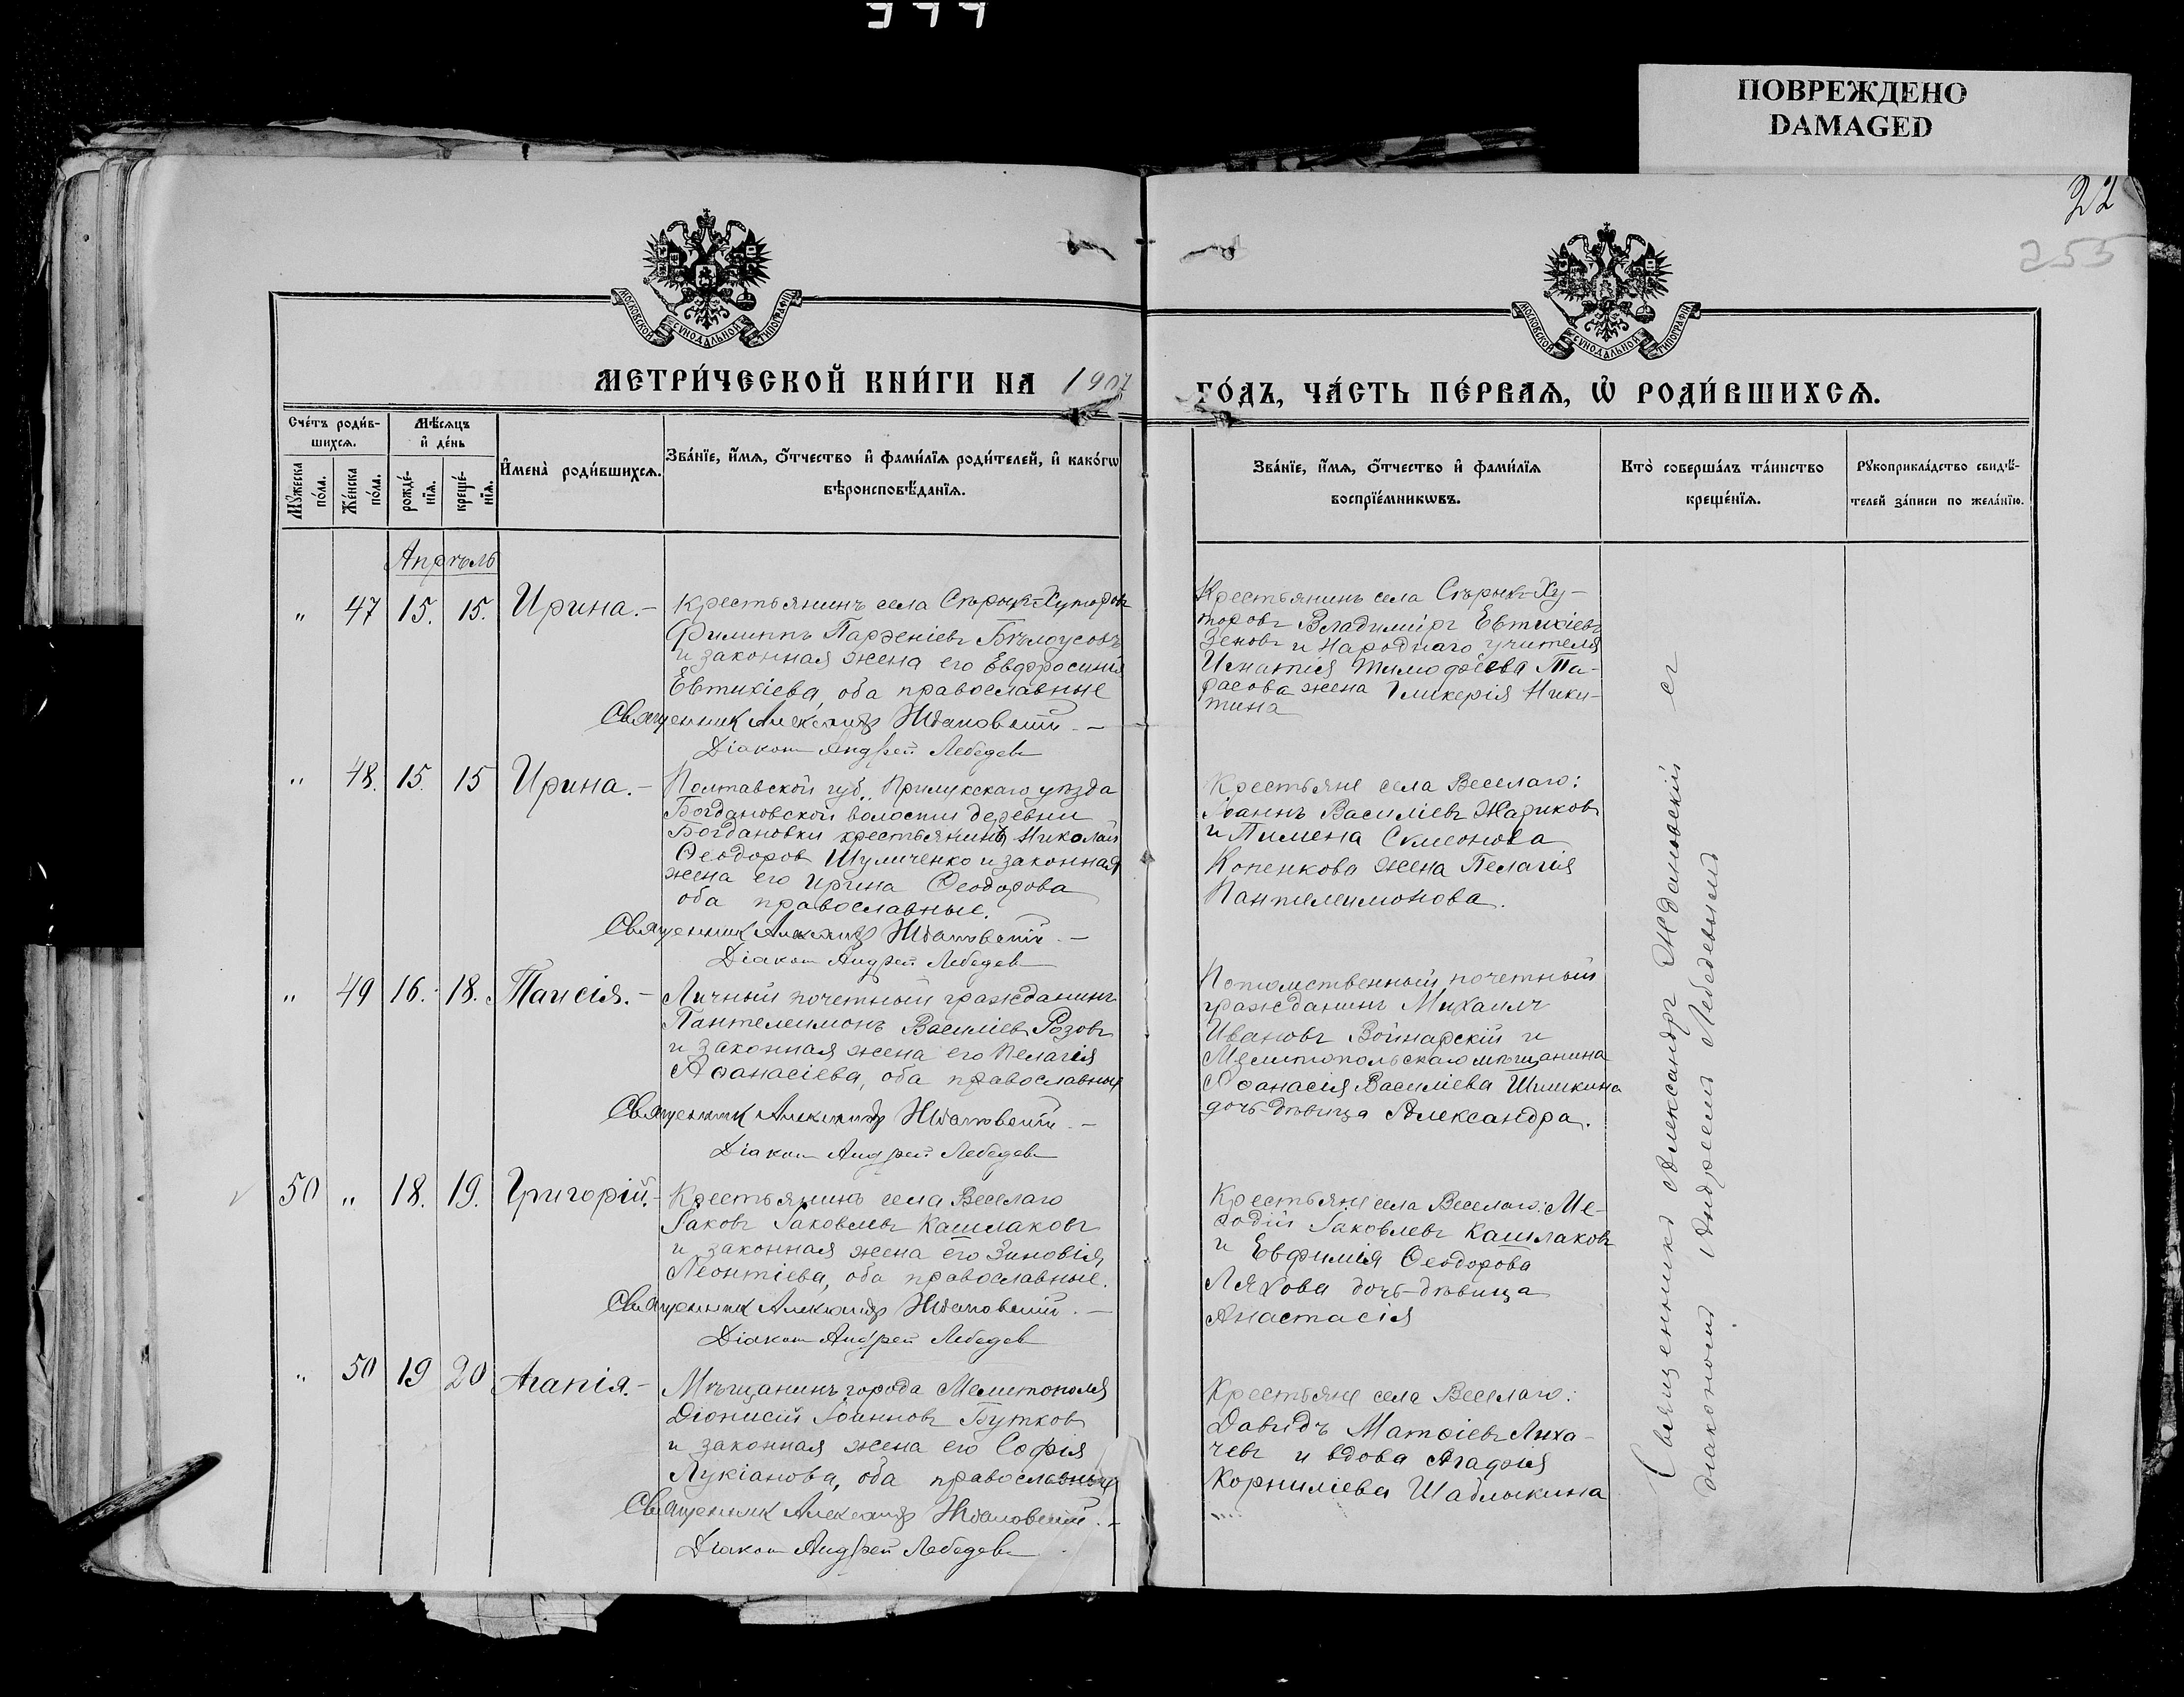 ПОВРЕЖДЕНО
DAMAGED
22
255
МОСКОВСКОЙ СѴНОДАЛЬНОЙ ТИПОГРАФІИ
МОСКОВСКОЙ СѴНОДАЛЬНОЙ ТИПОГРАФІИ
МЕТРИ́ЧЕСКОЙ КНИ́ГИ НА 1907
ГО́ДЪ, ЧА́СТЬ ПЕ́РВАѦ, Ѡ҆ РОДИ́ВШИХСѦ.
Сче́тъ роди́в-
шихсѧ.
Мѣ́сѧцъ
и҆ де́нь
Мꙋ́жеска
по́ла.
Же́нска
по́ла.
рожде́-
нїѧ.
креще́-
нїѧ.
И҆мена̀ роди́вшихсѧ.
Зва́нїе, и҆́мѧ, ѻ҆́тчество и҆ фами́лїѧ роди́телей, и҆ како́гѡ
вѣроисповѣ́данїѧ.
Зва́нїе, и҆́мѧ, ѻ҆́тчество и҆ фами́лїѧ
воспрїе́мникѡвъ.
Кто̀ соверша́лъ та́инство
креще́нїѧ.
Рꙋкоприкла́дство свидѣ́-
телей за́писи по жела́нїю.
Апрѣль
" 47 15. 15. Ирина.-
Крестьянинъ села Сѣрыхъ-Хуторовъ
Филиппъ Парѳеніевъ Бѣлоусовъ
и законная жена его Евфросинія
Евтихіева, оба православные
Священникъ Александръ Ждановскій. -
Діаконъ Андрей Лебедевъ
Крестьянинъ села Сѣрыхъ-Ху-
торовъ Владиміръ Евтихіевъ
Зеновъ и Народнаго учителя
Игнатія Тимоѳеева Та-
расова жена Гликерія Ники-
тина
" 48. 15. 15 Ирина.-
Полтавской губ., Прилукскаго уѣзда
Богдановской волости деревни
Богдановки крестьянинъ Николай
Ѳеодоровъ Шуличенко и законная
жена его Ирина Ѳеодорова
оба православные.
Священникъ Александръ Ждановскій. -
Діаконъ Андрей Лебедевъ
Крестьяне села Веселаго:
Іоаннъ Василіевъ Жариковъ
и Пимена Сѵмеонова
Копенкова жена Пелагія
Пантелеимонова.
" 49 16. 18. Таисія.-
Личный почетный гражданинъ
Пантелеимонъ Василіевъ Розовъ
и законная жена его Пелагія
Аѳанасіева, оба православные
Священникъ Александръ Ждановскій. -
Діаконъ Андрей Лебедевъ
Потомственный почетный
гражданинъ Михаилъ
Ивановъ Войнарскій и
Мелитопольскаго мѣщанина
Аѳанасія Василіева Шишкина
дочь-дѣвица Александра.
50 " 18. 19. Григорій.-
Крестьянинъ села Веселаго
Іаковъ Іаковлевъ Кашлаковъ
и законная жена его Зиновія
Леонтіева, оба православные.
Священникъ Александръ Ждановскій. -
Діаконъ Андрей Лебедевъ
Крестьяне села Веселаго: Ме-
ѳодій Іаковлевъ Кашлаковъ
и Евфимія Ѳеодорова
Ляхова дочь-дѣвица
Анастасія
" 50 19 20 Агапія.-
Мѣщанинъ города Мелитополя
Діонисій Іоанновъ Бутковъ
и законная жена его Софія
Лукіанова, оба православные
Священникъ Александръ Ждановскій. -
Діаконъ Андрей Лебедевъ
Крестьяне села Веселаго:
Давидъ Матѳіевъ Лиха-
чевъ и вдова Агафія
Корниліева Шаблыкина
Священникъ Александръ Ждановскій съ
діакономъ Андреемъ Лебедевымъ